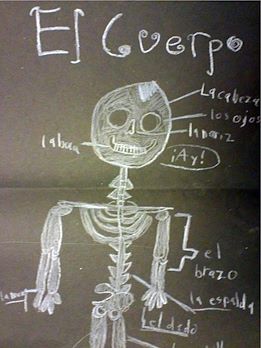 El Cuerpo
La cabeza
los ojos
la nariz
la boca
¡Ay!
el
brazo
la espalda
el dedo